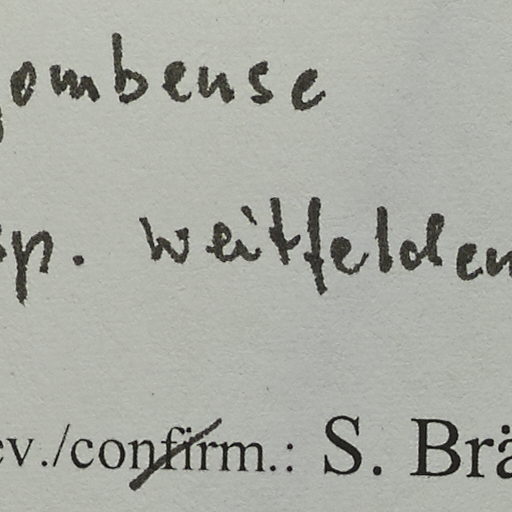 gombense
sp. weitfelden
ev./confirm.: S. Brä